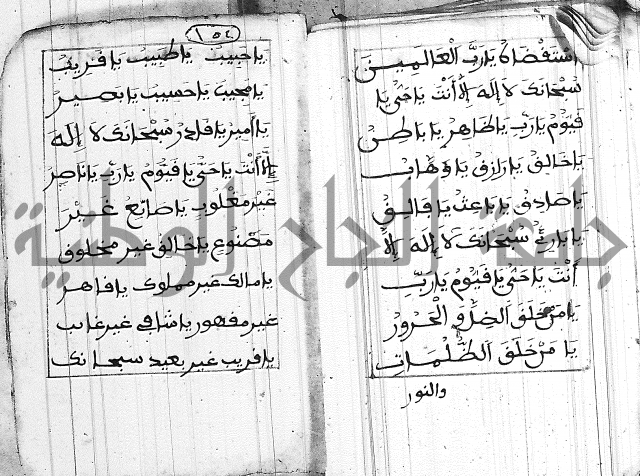 استقصاه يا رب العالمين
سبحانك لا إله إلا أنت يا حي يا
قيوم يا رب يا ظاهر يا باطن
يا خالق يا رازق يا وهاب
يا صادق يا باعث يا فالق
يا بارئ سبحانك لا إله إلا
أنت يا حي يا قيوم يا رب
يا من خلق الظل و الحرور
يا من خلق الظلمات
والنور
١٥٤
يا حبيب يا طبيب يا قريب
يا مجيب يا حسيب يا بصير
يا أمير يا قادر سبحانك لا إله
إلا أنت يا حي يا قيوم يا رب يا ناصر
غير مغلوب يا صانع غير
مصنوع يا خالق غير مخلوق
يا مالك غير مملوك يا قاهر
غير مقهور يا شافي غير غايب
يا قريب غير بعيد سبحانك
جامعة النجاح الوطنية